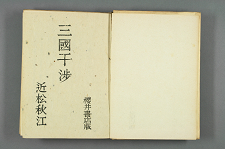 三國干渉
近松秋江
櫻井書店版